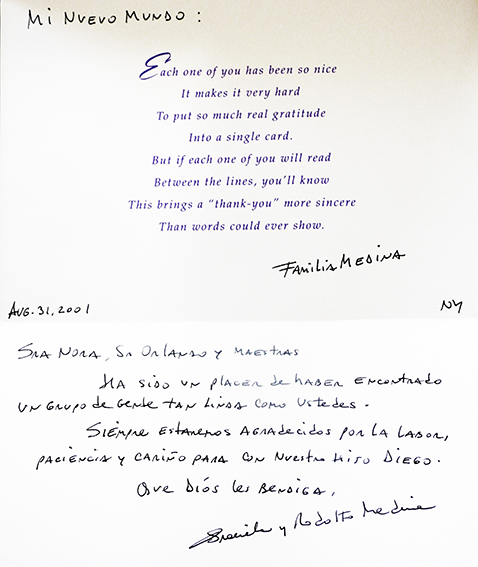 Mi Nuevo Mundo :
Each one of you has been so nice
It makes it very hard
To put so much real gratitude
Into a single card.
But if each one of you will read
Between the lines, you'll know
This brings a "thank-you" more sincere
Than words could ever show.
Familia Medina
Aug. 31, 2001 NY
Sra Nora, Sr Orlando y maestras
Ha sido un placer de haber encontrado
un grupo de gente tan linda como ustedes.
Siempre estaremos agradecidos por la labor,
paciencia y cariño para con nuestro hijo Diego.
Que Diós les bendiga,
Graciela y Rodolfo Medina